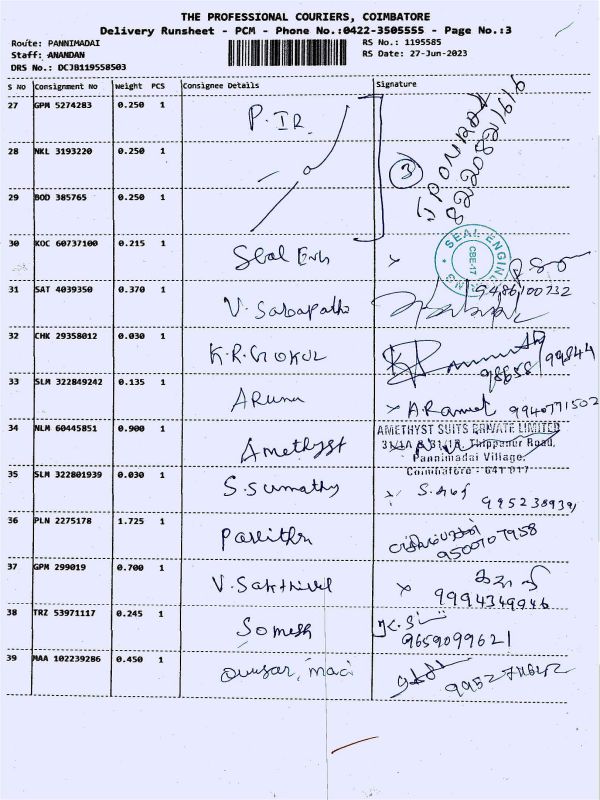 THE PROFESSIONAL COURIERS, COIMBATORE
Delivery Runsheet - PCM - Phone No.:0422-3505555 - Page No.:3
Route: PANNIMADAI
RS No.: 1195585
Staff: ANANDAN
RS Date: 27-Jun-2023
DRS No.: DCJB119558503
S No Consignment No Weight PCS Consignee Details Signature
27 GPM 5274283 0.250 1 P. IR
28 NKL 3193220 0.250 1 3
29 BOD 385765 0.250 1
PONRAJ
8220821616
30 KOC 60737100 0.215 1 Seal
SEAL ENGIN
CBE-17
31 SAT 4039350 0.370 1 V. Sabapathy
9486100232
32 CHK 29358012 0.030 1 K.R. GOKUL
33 SLM 322849242 0.135 1 Aruna
9940771502
34 NLM 60445851 0.900 1 Amethyst
AMETHYST SUITS PRIVATE LIMITED
Thippanur Road,
Pannimadai Village,
Coimbatore - 641 017
35 SLM 322801939 0.030 1 S. Sumathy
36 PLN 2275178 1.725 1 Pavithra
9500707958
37 GPM 299019 0.700 1 V. Sakthivel
9994349946
38 TRZ 53971117 0.245 1 Somesh
9659099621
39 MAA 102239286 0.450 1